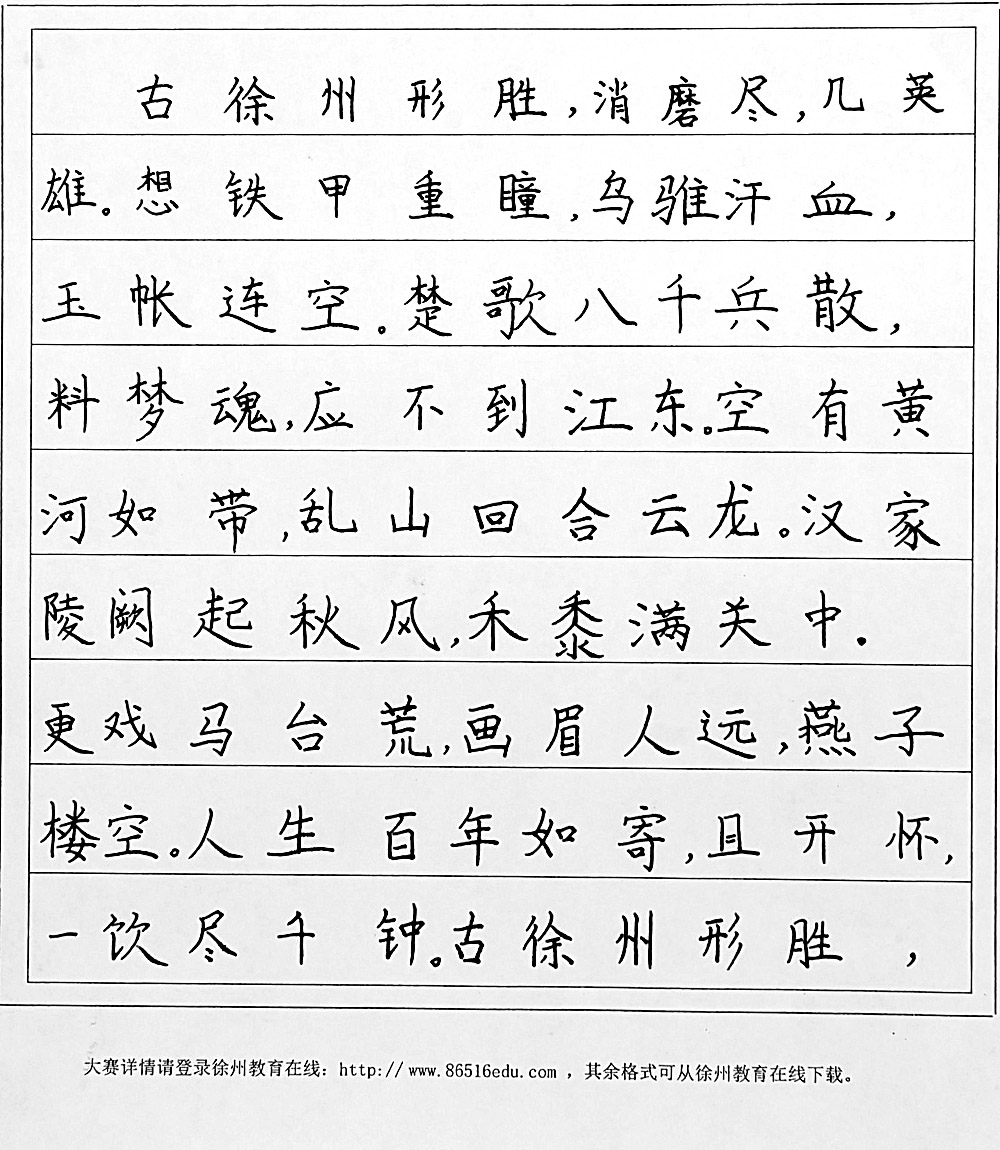 古徐州形胜,消磨尽,几英
雄。想铁甲重瞳,乌骓汗血,
玉帐连空。楚歌八千兵散,
料梦魂,应不到江东。空有黄
河如带,乱山回合云龙。汉家
陵阙起秋风,禾黍满关中.
更戏马台荒,画眉人远,燕子
楼空。人生百年如寄,且开怀,
一饮尽千钟。古徐州形胜,
大赛详情请登录徐州教育在线：http://www.86516edu.com ，其余格式可从徐州教育在线下载。